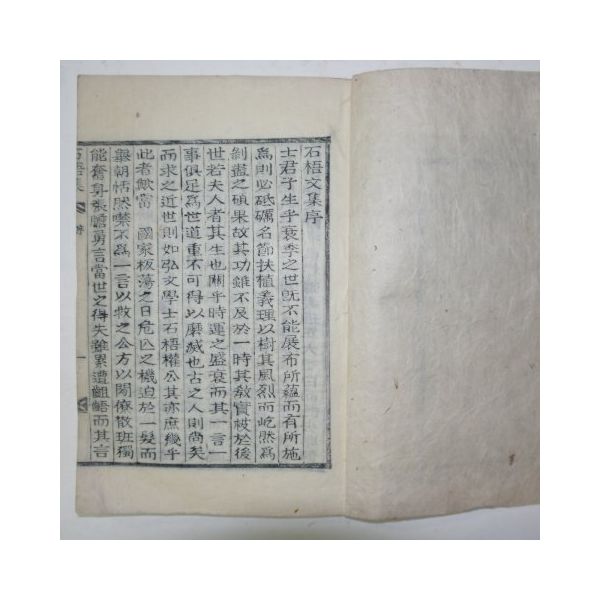 石梧文集序
士君子生乎衰季之世旣不能展布所蘊而有所施
爲則必砥礪名節扶植義理以樹其風烈而屹然爲
剝盡之碩果故其功雖不及於一時其敎實被於後
世若夫人者其生也關乎時運之盛衰而其一言一
事俱足爲世道重不可得以磨滅也古之人則尙矣
而求之近世則如弘文學士石梧權公其亦庶幾乎
此者歟當 國家板蕩之日危亡之機迫於一髮而
舉朝恬然噤不爲一言以救之公方以閑僚散班獨
能奮身張膽勇言當世之得失雖累遭齟齬而其言
石梧集 序 一